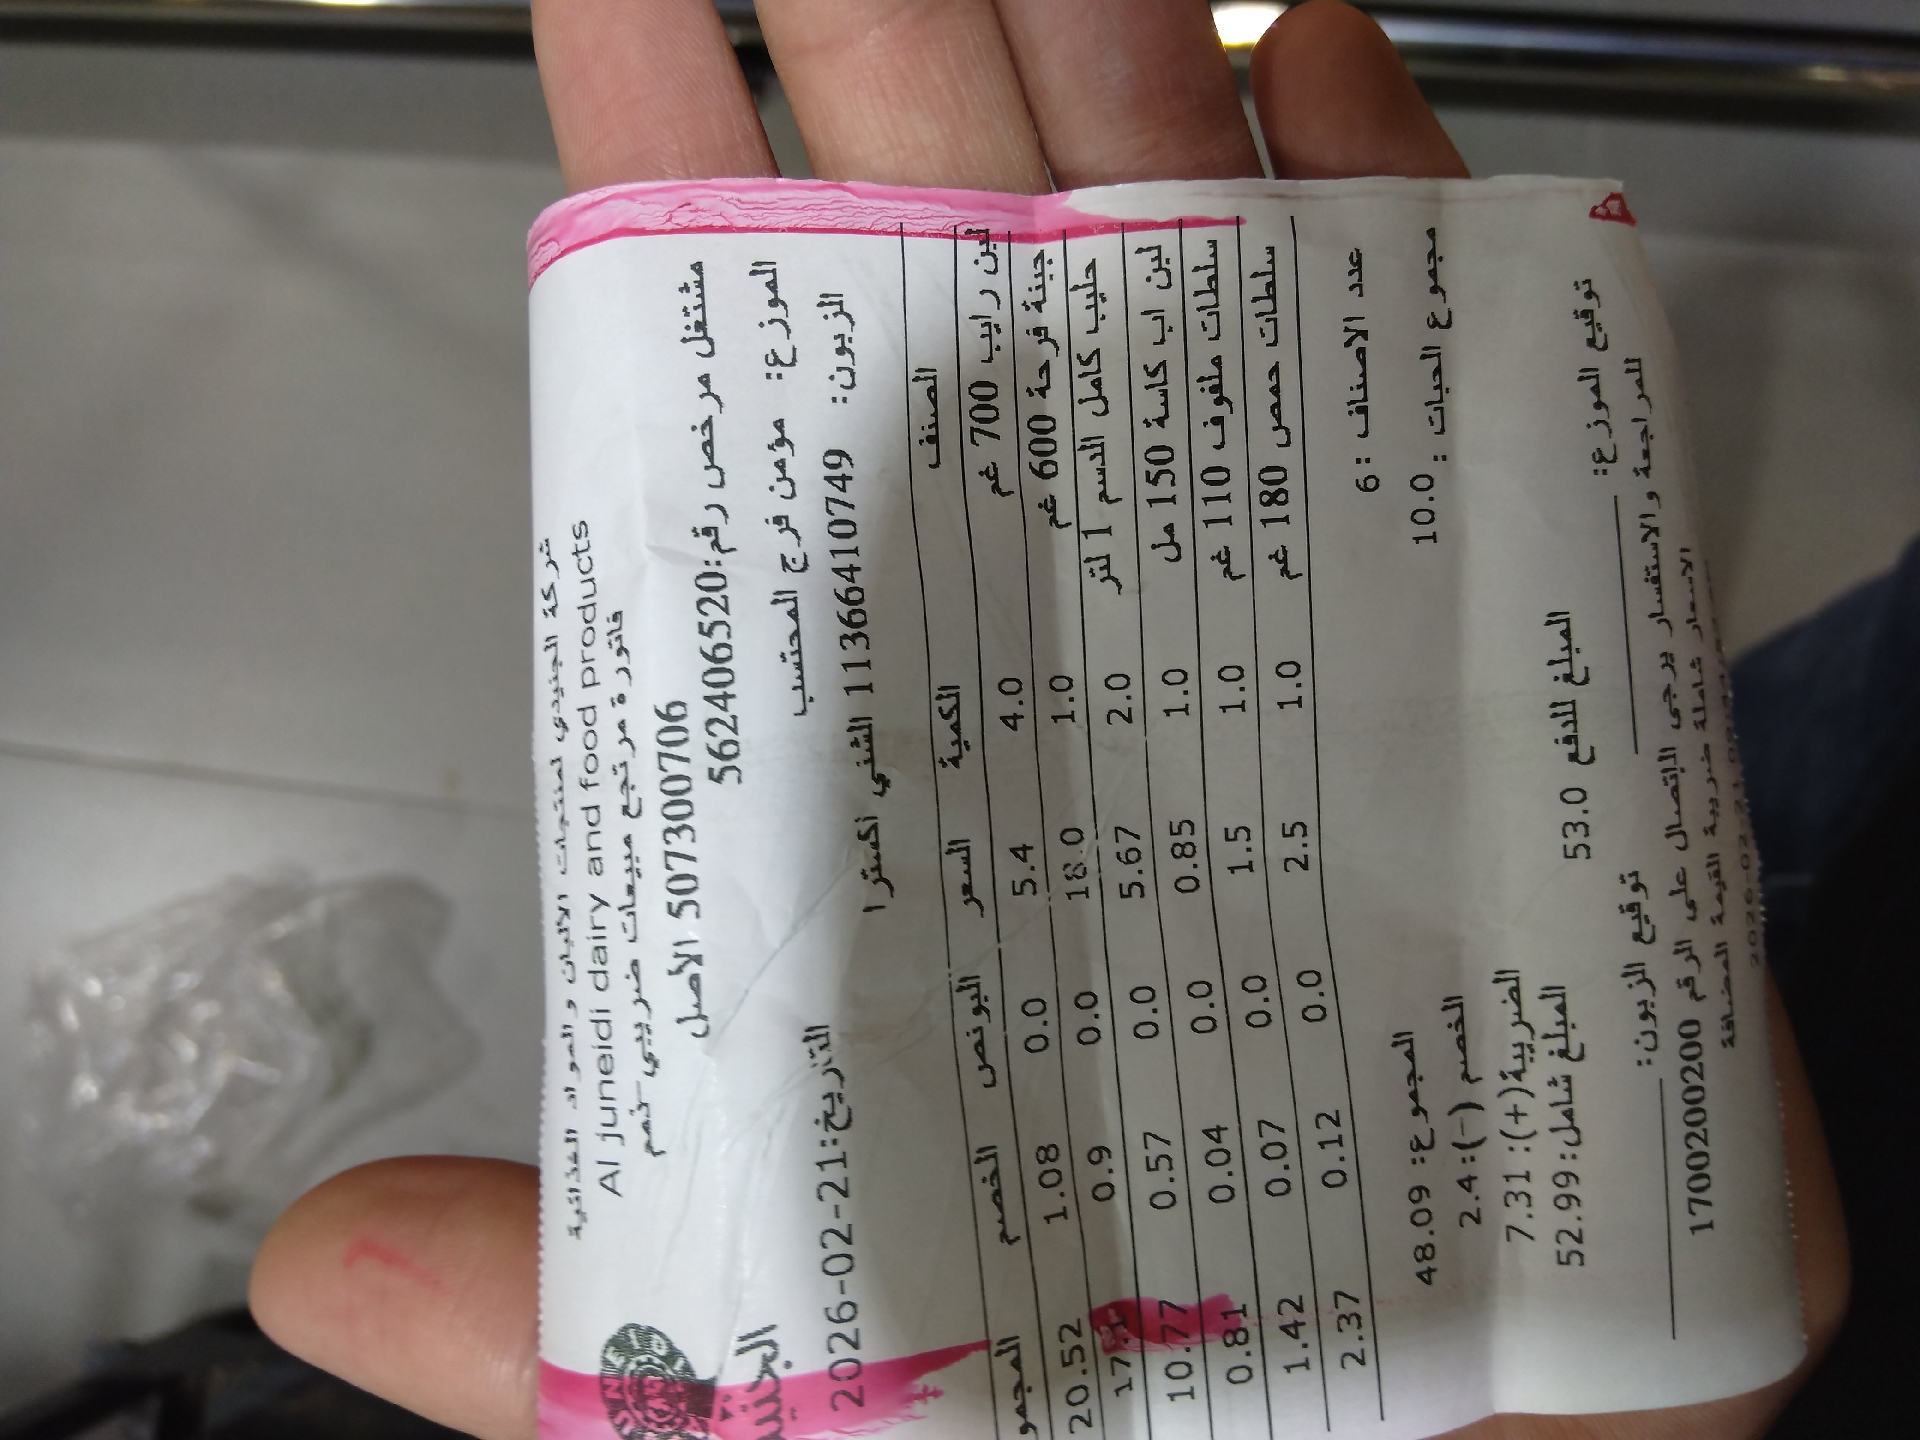 شركة الجنيدي لمنتجات الالبان و المواد الغذائية
Al juneidi dairy and food products
فاتورة مرتجع مبيعات ضريبي-خصم
507300706 الأصل
مشتغل مرخص رقم:562406520
الجنيدي
الموزع: مؤمن فرج المحتسب
التاريخ:2026-02-21
الزبون: 11366410749 الشني اكسترا
الصنف الكمية السعر البونص الخصم المجمو
لبن رايب 700 غم 4.0 5.4 0.0 1.08 20.52
جبنة فرحة 600 غم 1.0 18.0 0.0 0.9 17.1
حليب كامل الدسم 1 لتر 2.0 5.67 0.0 0.57 10.77
لبن اب كاسة 150 مل 1.0 0.85 0.0 0.04 0.81
سلطات ملفوف 110 غم 1.0 1.5 0.0 0.07 1.42
سلطات حمص 180 غم 1.0 2.5 0.0 0.12 2.37
عدد الاصناف : 6
المجموع: 48.09
مجموع الحبات : 10.0
الخصم (-): 2.4
الضريبة(+): 7.31
المبلغ للدفع 53.0
المبلغ شامل: 52.99
توقيع الموزع: توقيع الزبون:
للمراجعة والاستفسار يرجى الإتصال على الرقم 1700200200
الاسعار شاملة ضريبة القيمة المضافة